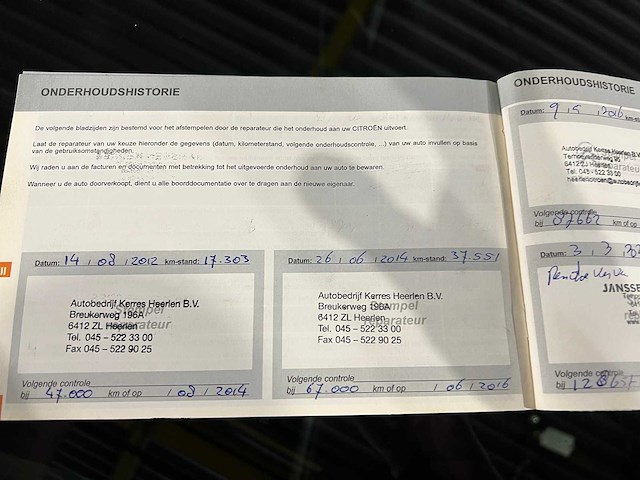 ONDERHOUDSHISTORIE
De volgende bladzijden zijn bestemd voor het afstempelen door de reparateur die het onderhoud aan uw CITROËN uitvoert.
Laat de reparateur van uw keuze hieronder de gegevens (datum, kilometerstand, volgende onderhoudscontrole, ...) van uw auto invullen op basis
van de gebruiksomstandigheden.
Wij raden u aan de facturen en documenten met betrekking tot het uitgevoerde onderhoud aan uw auto te bewaren.
Wanneer u de auto doorverkoopt, dient u alle boorddocumentatie over te dragen aan de nieuwe eigenaar.
Datum: 14 / 08 / 2012 km-stand: 17.303
Stempel
reparateur
Autobedrijf Kerres Heerlen B.V.
Breukerweg 196A
6412 ZL Heerlen
Tel. 045 – 522 33 00
Fax 045 – 522 90 25
Volgende controle
bij 47.000 km of op / 08 / 2014
Datum: 26 / 06 / 2014 km-stand: 37.551
Stempel
reparateur
Autobedrijf Kerres Heerlen B.V.
Breukerweg 196A
6412 ZL Heerlen
Tel. 045 – 522 33 00
Fax 045 – 522 90 25
Volgende controle
bij 67.000 km of op / 06 / 2016
ONDERHOUDSHISTORIE
Datum:
Autobedrijf Kerres Heerlen B.V.
6412 ZL Heerlen
Tel. 045 - 522 33 00
Volgende controle
bij km of op
Datum: 3 / 3
JANSSE
Volgende controle
bij